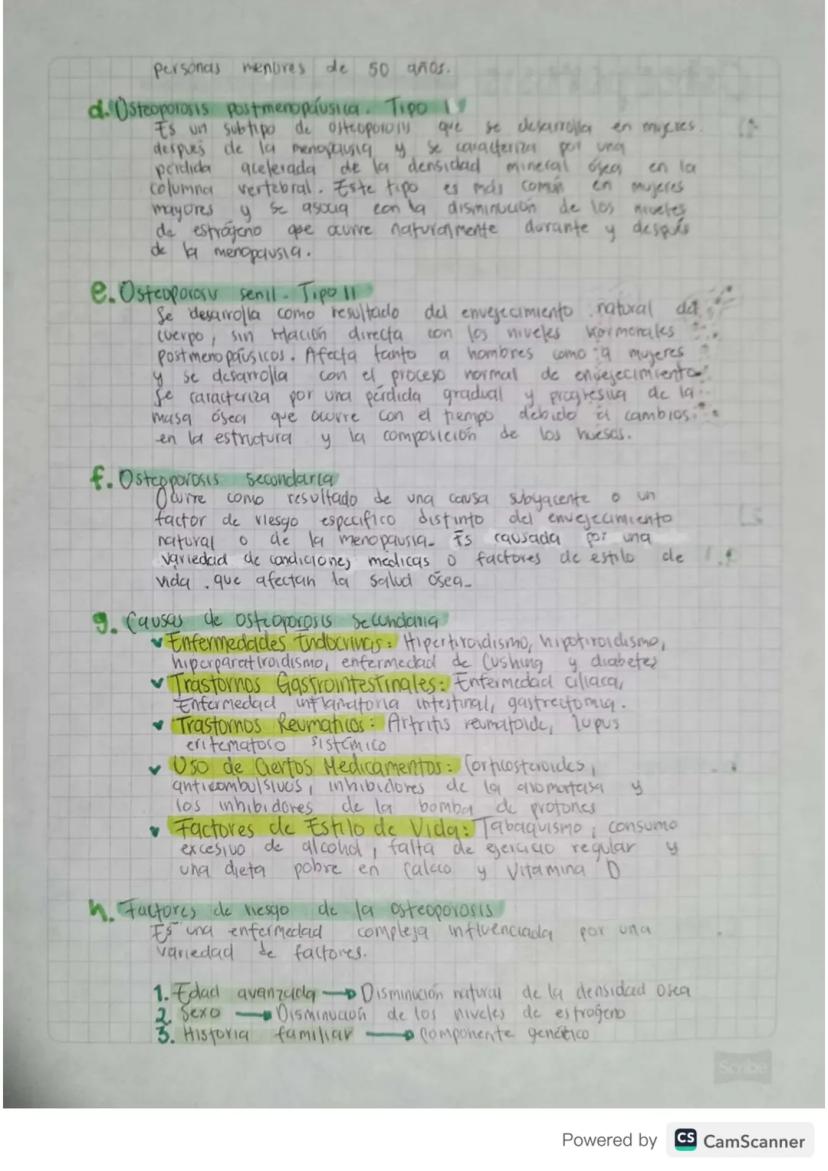 personas menores de 50 años.
d. Osteoporosis postmenopáusica. Tipo I
Es un subtipo de osteoporosis que se desarrolla en mujeres
después de la menopausia y se caracteriza por una
perdida acelerada de la densidad mineral ósea en la
columna vertebral. Este tipo es más común en mujeres
mayores y se asocia con la disminución de los niveles
de estrógeno que ocurre naturalmente durante y después
de la menopausia.
e. Osteoporosis senil. Tipo II
Se desarrolla como resultado del envejecimiento natural del
cuerpo, sin relación directa con los niveles hormonales
postmenopáusicos. Afecta tanto a hombres como a mujeres
y se desarrolla con el proceso normal de envejecimiento.
Se caracteriza por una pérdida gradual y progresiva de la
masa ósea que ocurre con el tiempo debido a cambios
en la estructura y la composición de los huesos.
f. Osteoporosis secundaria
Ocurre como resultado de una causa subyacente o un
factor de riesgo específico distinto del envejecimiento
natural o de la menopausia. Es causada por una
variedad de condiciones médicas o factores de estilo de
vida que afectan la salud ósea.
g. Causas de osteoporosis secundaria
✓ Enfermedades Endocrinas: Hipertiroidismo, hipotiroidismo,
hiperparatiroidismo, enfermedad de Cushing y diabetes
✓ Trastornos Gastrointestinales: Enfermedad ciliaca,
Enfermedad inflamatoria intestinal, gastrectomia.
✓ Trastornos Reumaticos: Artritis reumatoide, lupus
eritematoso sistémico
✓ Uso de Ciertos Medicamentos: Corticosteroides,
anticombulsivos, inhibidores de la aromatasa y
los inhibidores de la bomba de protones
✓ Factores de Estilo de Vida: Tabaquismo, consumo
excesivo de alcohol, falta de ejercicio regular y
una dieta pobre en Calcio y Vitamina D
h. Factores de riesgo de la osteoporosis
Es una enfermedad compleja influenciada por una
variedad de factores.
1. Edad avanzada → Disminución natural de la densidad osea
2. Sexo → Disminución de los niveles de estrógeno
3. Historia familiar → Componente genético
Scribe
Powered by CS CamScanner